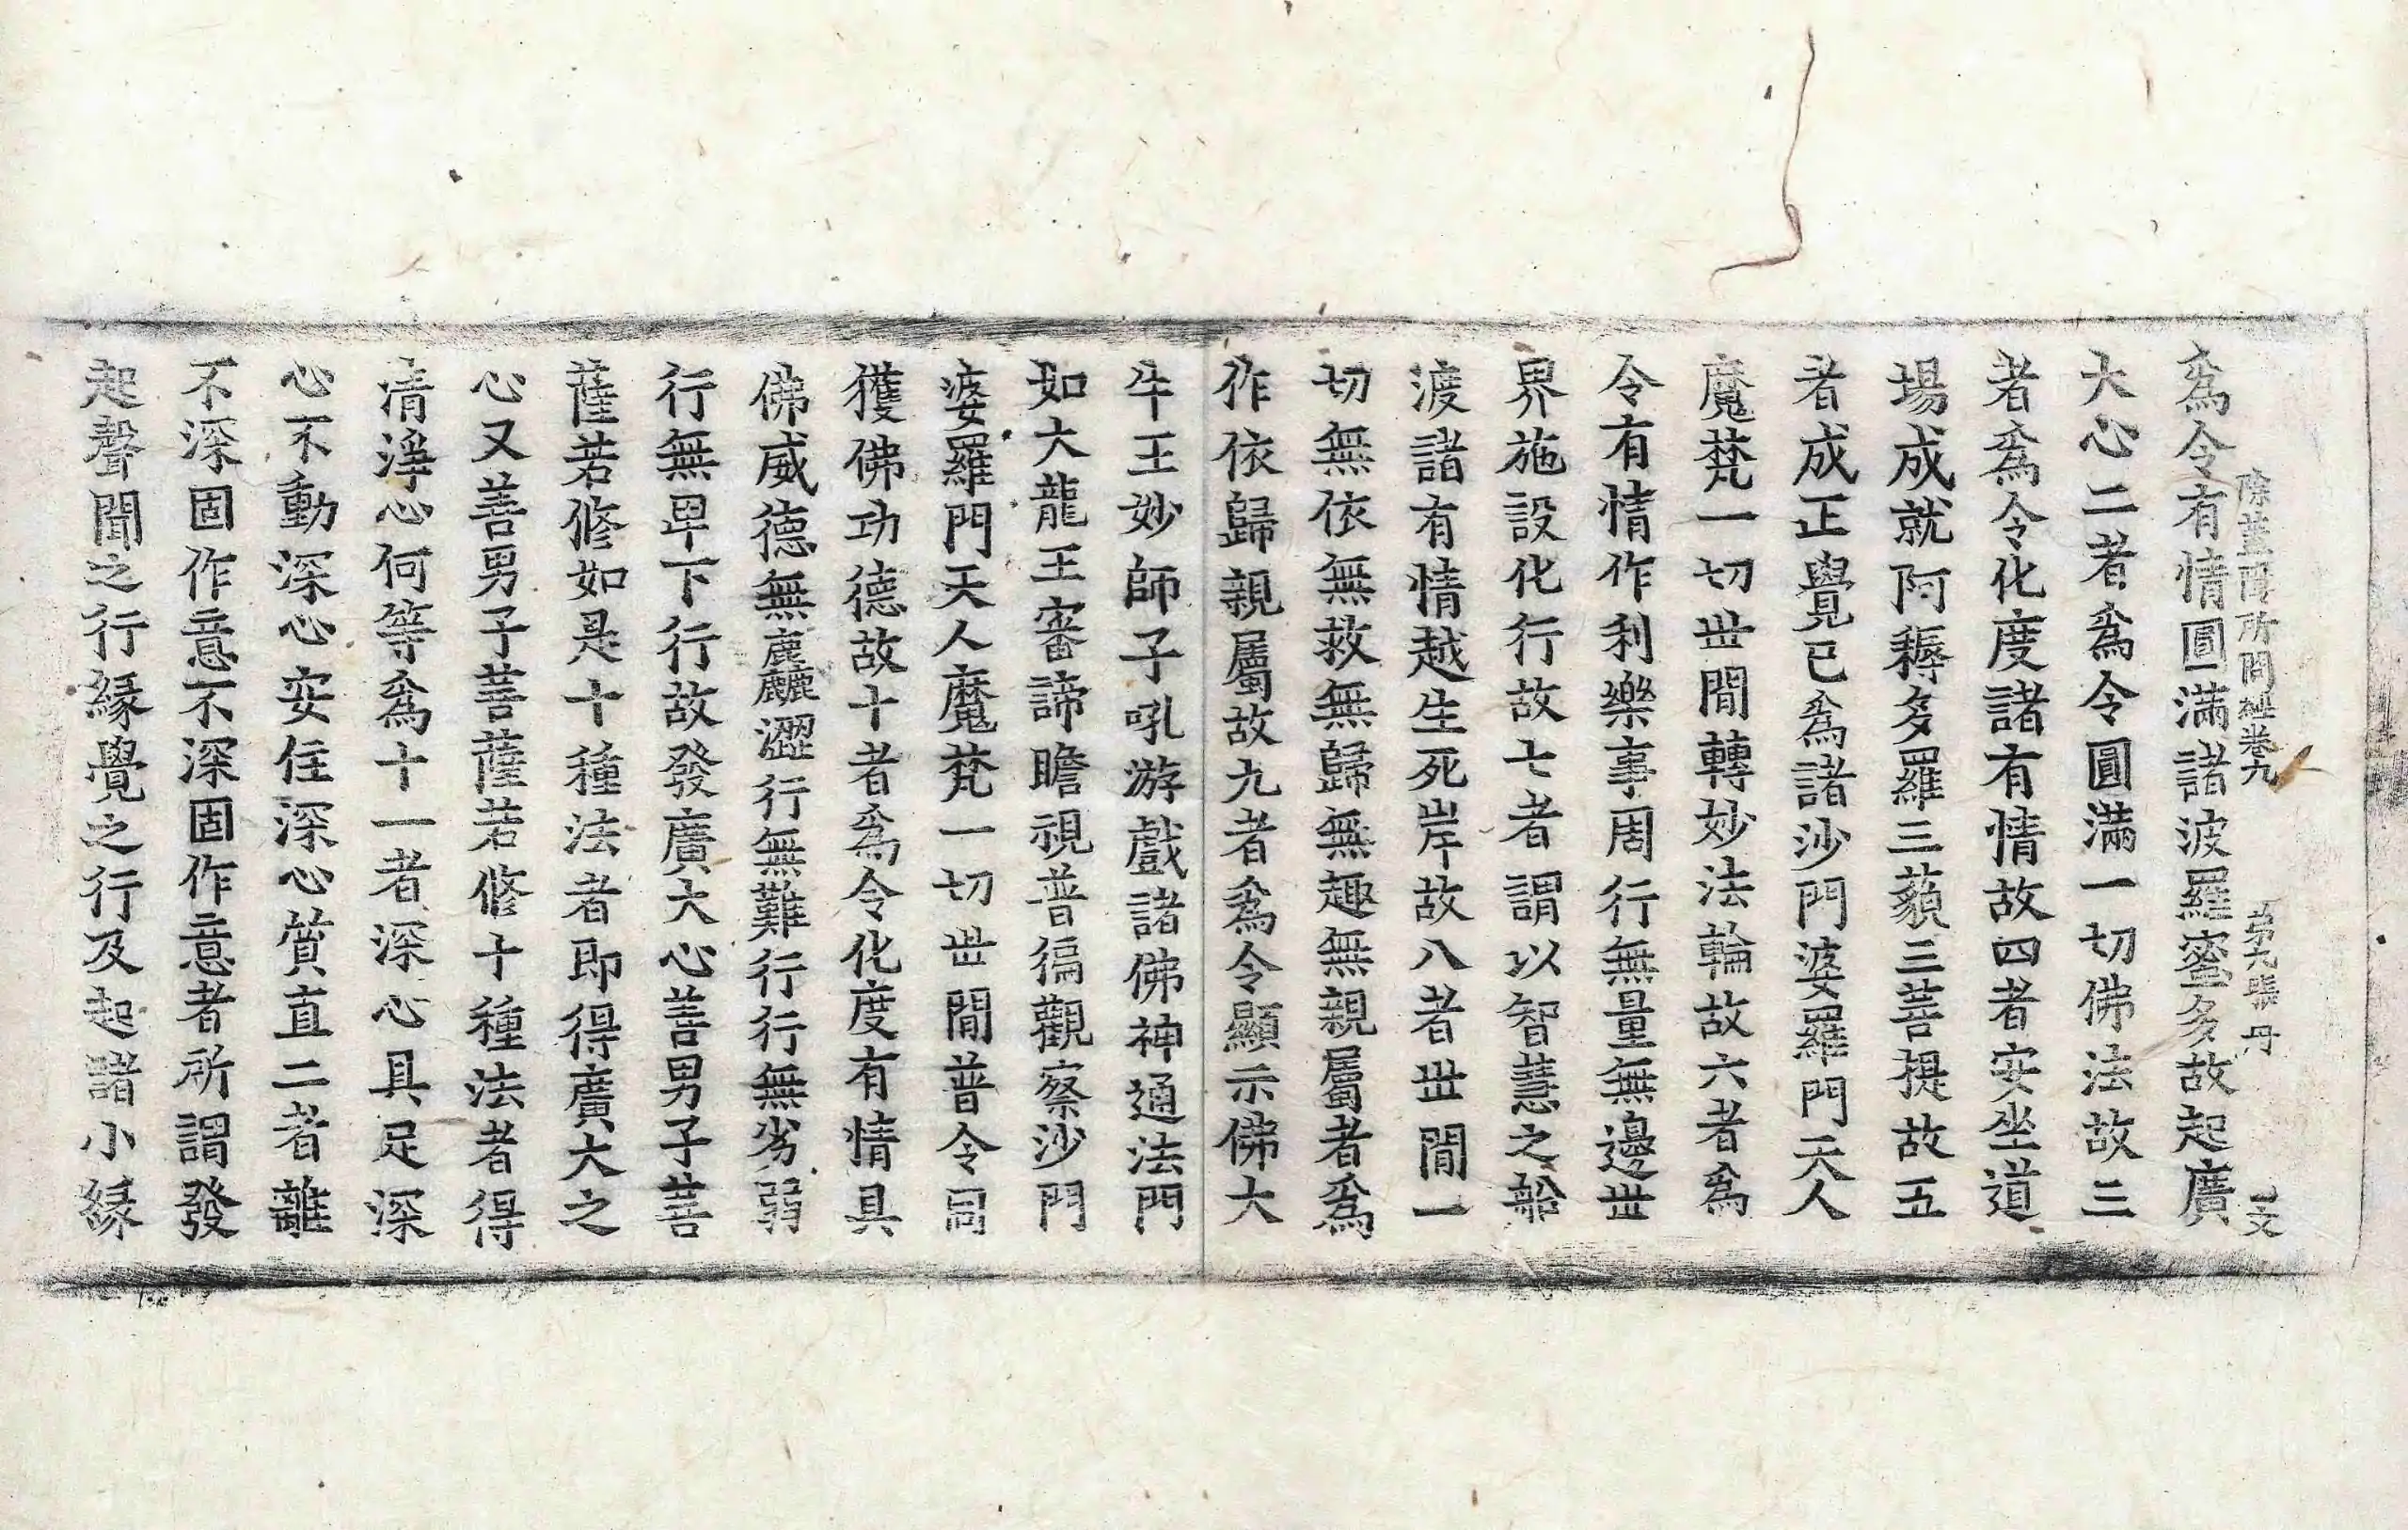 除蓋障所問經卷九 第九張 丹
爲令有情圓滿諸波羅蜜多故起廣
大心二者爲令圓滿一切佛法故三
者爲令化度諸有情故四者安坐道
場成就阿耨多羅三藐三菩提故五
者成正覺已爲諸沙門婆羅門天人
魔梵一切丗間轉妙法輪故六者爲
令有情作利樂事周行無量無邊丗
界施設化行故七者謂以智慧之船
渡諸有情越生死岸故八者丗間一
切無依無救無歸無趣無親屬者爲
作依歸親屬故九者爲令顯示佛大
牛王妙師子吼游戲諸佛神通法門
如大龍王審諦瞻視普徧觀察沙門
婆羅門天人魔梵一切丗間普令同
獲佛功德故十者爲令化度有情具
佛威德無麤澀行無難行行無劣弱
行無卑下行故發廣大心善男子菩
薩若修如是十種法者即得廣大之
心又善男子菩薩若修十種法者得
清淨心何等爲十一者深心具足深
心不動深心安住深心質直二者離
不深固作意不深固作意者所謂發
起聲聞之行緣覺之行及起諸小緣